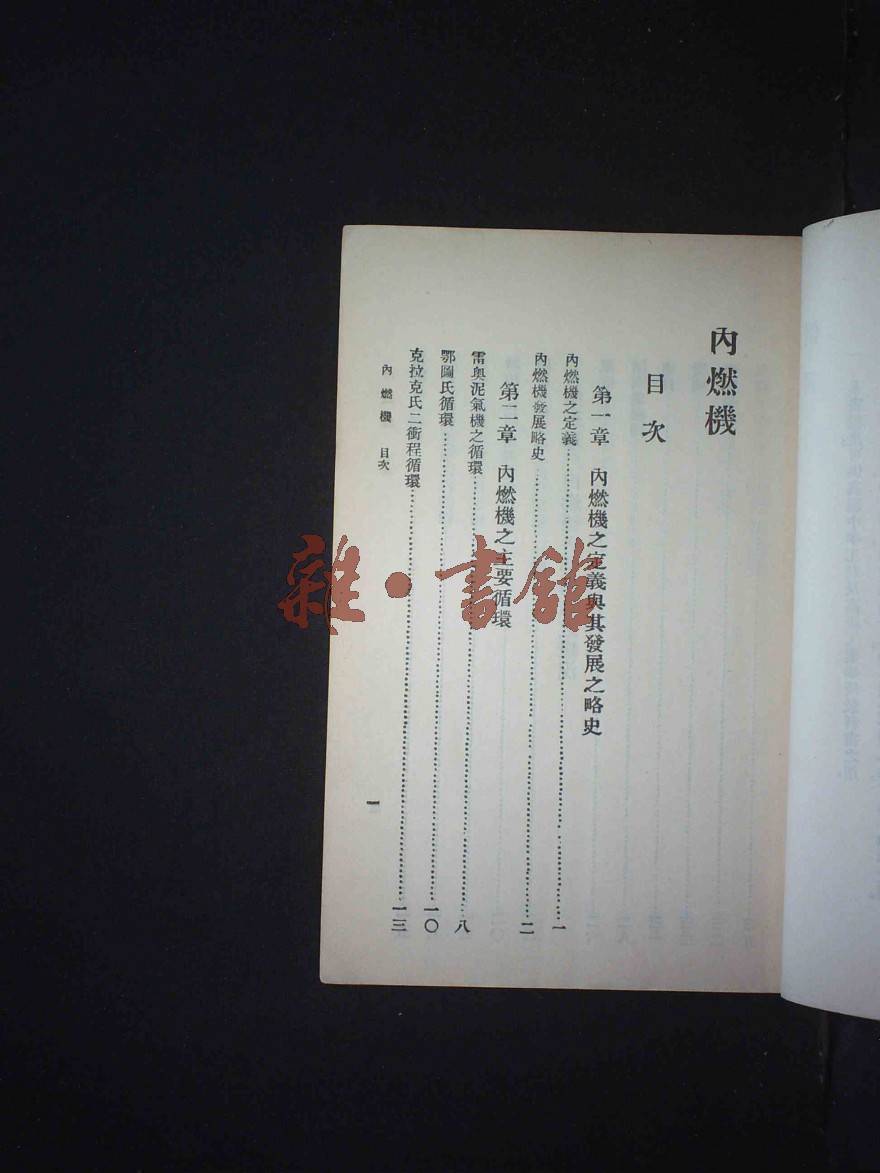 內燃機
目次
第一章 內燃機之定義與其發展之略史
內燃機之定義……一
內燃機發展略史……二
第二章 內燃機之主要循環
雷奧泥氣機之循環……八
鄂圖氏循環……一〇
克拉克氏二衝程循環……一三
內燃機 目次
一
雜·書館